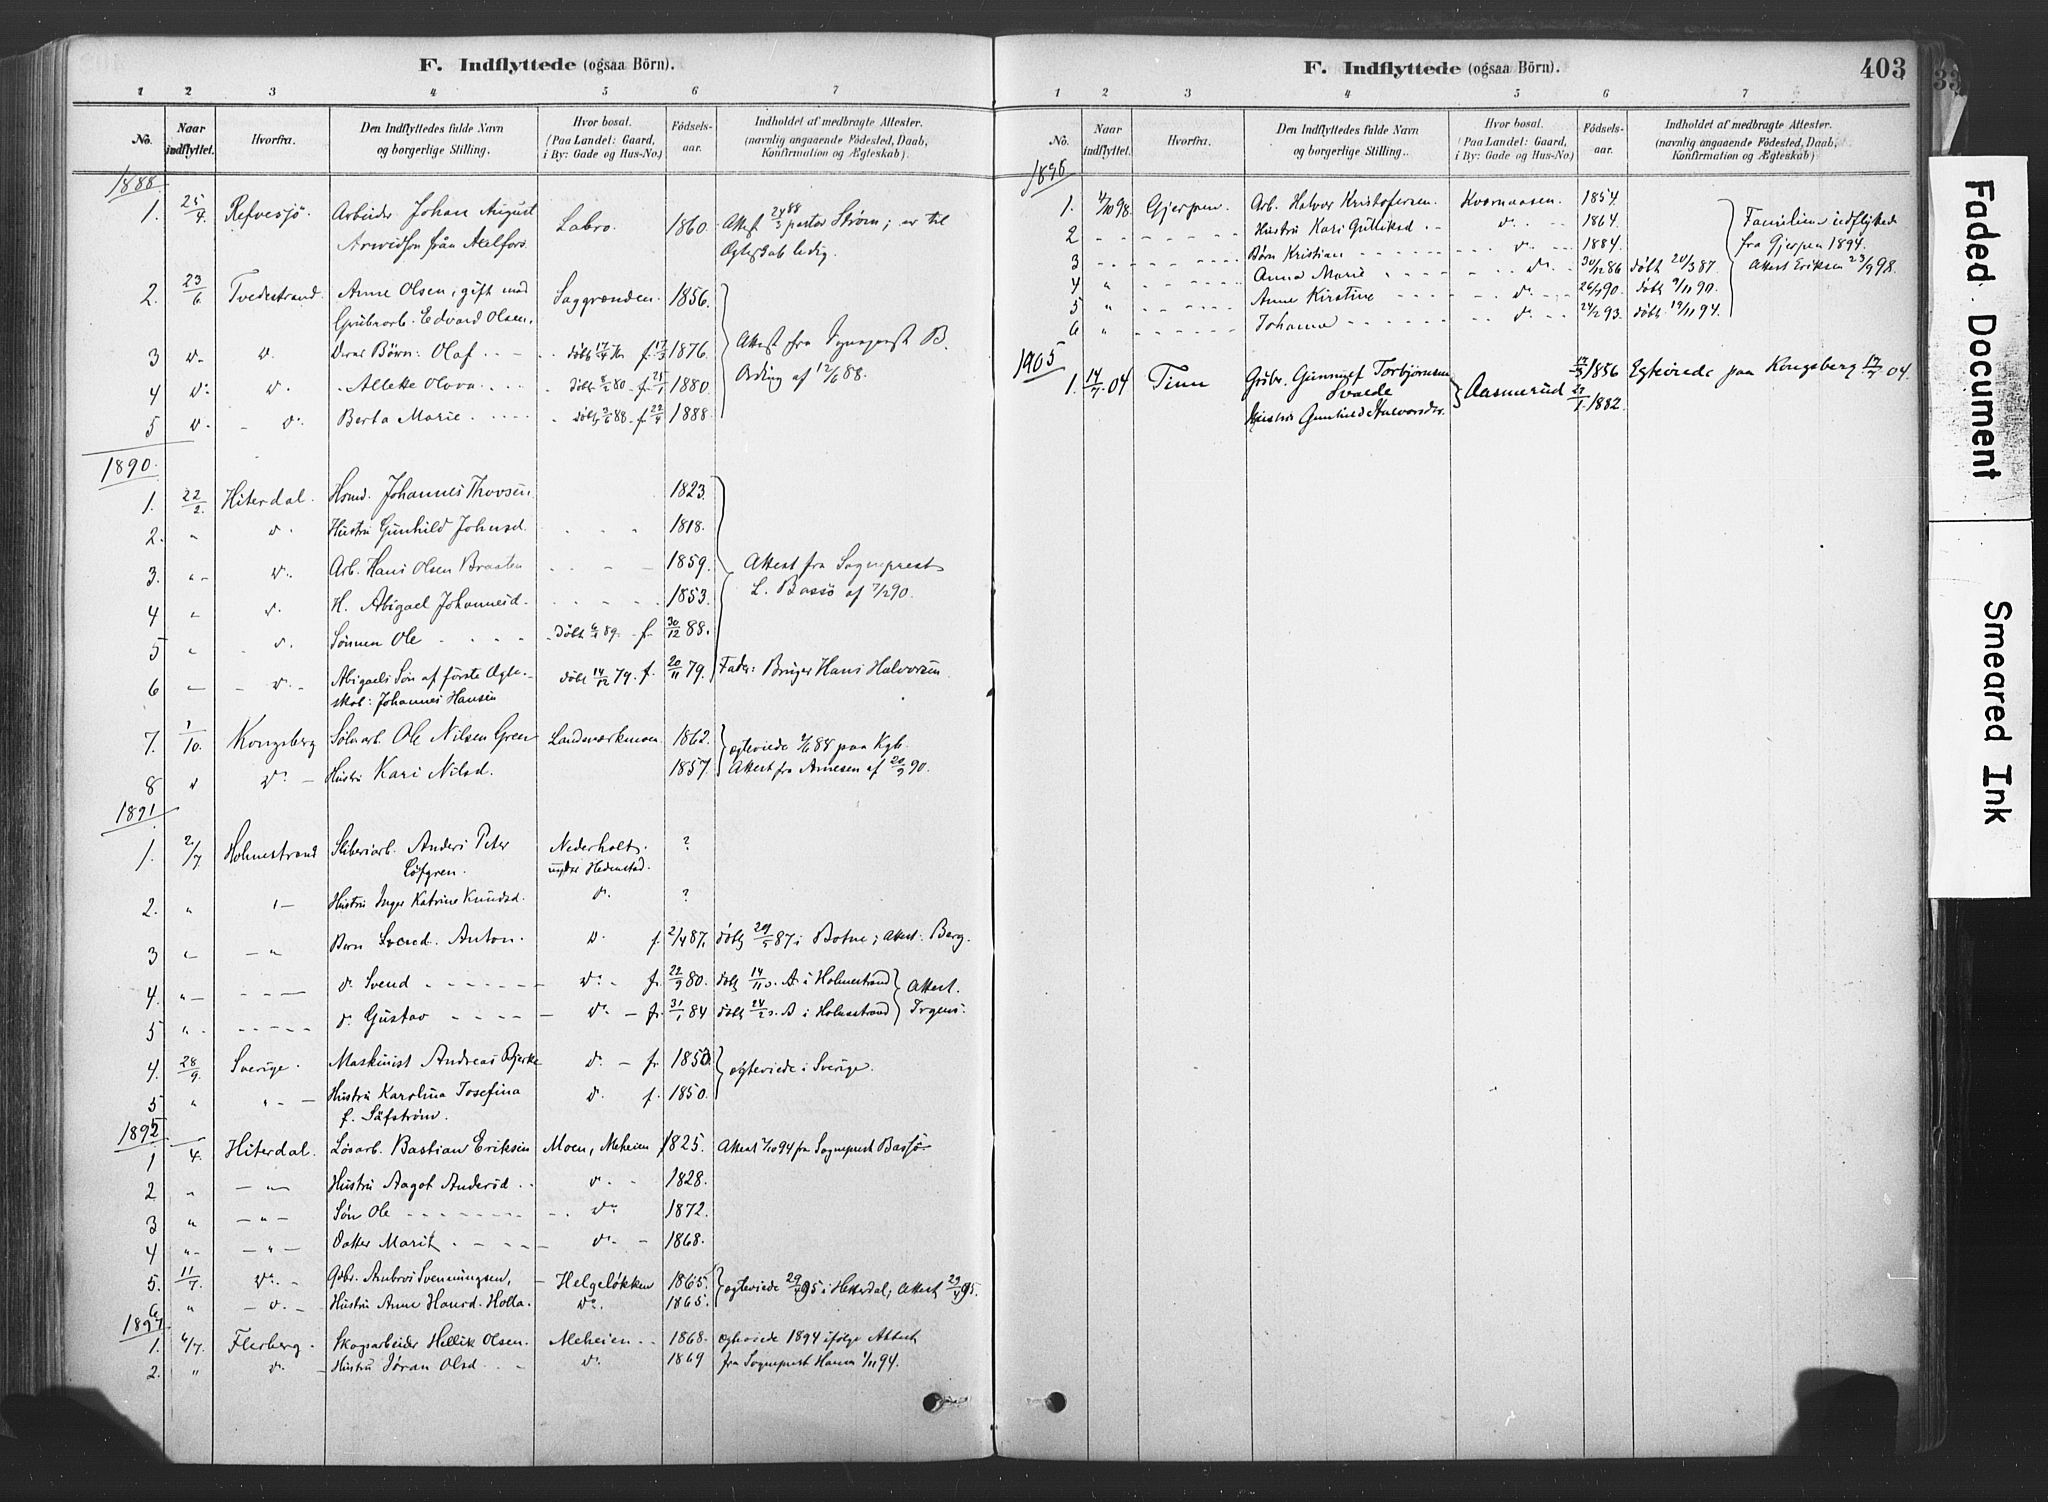 F. Indflyttede (ogsaa Börn).
1 2 3 4 5 6 7
No. Naar indflyttet. Hvorfra. Den Indflyttedes fulde Navn og borgerlige Stilling. Hvor bosat. (Paa Landet: Gaard, i By: Gade og Hus-No.) Födsels-aar. Indholdet af medbragte Attester. (navnlig angaaende Födested, Daab, Konfirmation og Ægteskab).
1888.
1. 25/4 Refvesjö. Arbeider Johan August Labro. 1860. Attest 24/3 88 pastor Strøm; er til
Arwidson från Adelfors. Ægteskab ledig.
2. 23/6 Tvedestrand. Anne Olsen, gift med Saggrenden. 1856.
Grubearb. Edvard Olsen.
3 d. d. Deres Børn: Olaf f. 17/3 1876. Attest fra Sogneprest B.
4 d. d. Døbt 8/2 80 f. 25/1 1880. Ording af 12/6 88.
5 d. d. Berta Marie Døbt 3/6 88 f. 22/4 1888.
1890.
1. 22/2 Hiterdal. Hsmd. Johannes Thovsen 1823.
2. " d. Hustru Gunhild Johnsd. 1818.
3. " d. Arb. Hans Olsen Braaten 1859. Attest fra Sogneprest
4 " d. H. Abigael Johannesd. 1853. L. Bassö af 7/2 90.
5 " d. Sønnen Ole døbt 89. f. 30/12 88.
6 d. Abigaels Søn af første Ægte- døbt 14/12 79. f. 20/11 79. Fader: Bruger Hans Halvorsen
skab: Johannes Hansen
7. 1/10. Kongsberg Sølvarb. Ole Nilsen Green Landsværkmoen 1862. ægteviede 88 paa Kgb.
8 " d. Hustru Kari Nilsd. 1857. Attest fra Arnesen af 20/9 90.
1891
1. 2/7 Holmestrand Sliberiarb. Anders Peter Nederholt ?
Löfgren. under Hedenstad.
2. " Hustru Inger Katrine Knudsd. d. ?
3 " Børn Svend Anton. d. f. 2/4 87. døbt 29/5 87 i Botne; Attest. Berg.
4. " d. Svend d. f. 22/9 80. døbt 14/11 s. A i Holmestrand Attest.
5 " d. Gustav d. f. 31/1 84 døbt 24/2 s. A i Holmestrand Irgens.
4. 28/9. Sverige. Maskinist Andreas Bjerke d. f. 1850 ægteviede i Sverige.
5 " " Hustru Karolina Josefina d. f. 1850.
f. Säfström.
1895
1 4. Hiterdal. Løsarb. Bastian Eriksen Moen, Meheien 1825. Attest 94 fra Sogneprest Bassö
2 " " Hustru Aagot Andersd. d. 1828.
3 " " Søn Ole d. 1872.
4 " " Datter Marit d. 1868.
5. 11/7. d. Gbr. Ambros Svenningsen, Helgeløkken 1865. ægteviede 95 i Hitterdal, Attest 95.
6 " d. Hustru Anne Hansd. Holla. d. 1865.
1897
1. 6/7. Flesberg. Skogsarbeider Hellik Olsen. Meheien 1868. ægteviede 1894 ifølge Attest
2. " d. Hustru Jøran Olsd d. 1869 fra Sogneprest 1/11 94.
F. Indflyttede (ogsaa Börn). 403
1 2 3 4 5 6 7
No. Naar indflyttet. Hvorfra. Den Indflyttedes fulde Navn og borgerlige Stilling. Hvor bosat. (Paa Landet: Gaard, i By: Gade og Hus-No.) Födsels-aar. Indholdet af medbragte Attester. (navnlig angaaende Födested, Daab, Konfirmation og Ægteskab).
1. 98. Gjerpen. Arb. Halvor Kristofersen. Kvernaasen. 1854.
2 Hustru Kari Gulliksd d. 1864. Familien indflyttede
3 Børn Kristian d. 1884. fra Gjerpen 1894.
4 " Anna Marie d. 30/12 86 døbt 20/3 87. Attest Eriksen 23/9 98.
5 " Anne Kirstine d. 26/9 90. døbt 9/11 90.
6 " Johanna d. 24/2 93. døbt 19/11 94.
1905
1. 14/7 04 Tinn Gubr. Gunnulf Torbjørnsen 1856 Egteviede paa Kongsberg 04.
Aasmerud
Hustru Gunhild Halvorsdr. 1882.
Faded Document
Smeared Ink